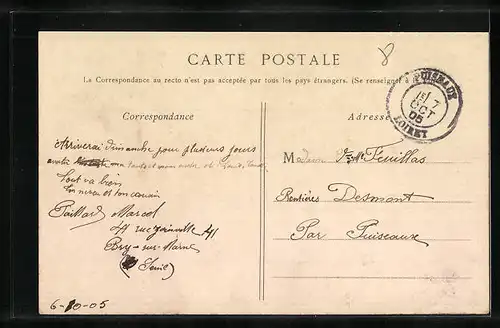 CARTE POSTALE
8
La Correspondance au recto n'est pas acceptée par tous les pays étrangers. (Se renseigner à
PUISEAUX
7
OCT
05
LOIRET
Correspondance
Adresse
Arriverai dimanche pour plusieurs jours
tante et mon
Tout va bien
ton neveu et ton cousin
Paillard Marcel
41 rue Joinville 41
Bry-sur-Marne
(Seine)
6-10-05
Madame Vve Feuillas
Rentière Desmont
Par Puiseaux